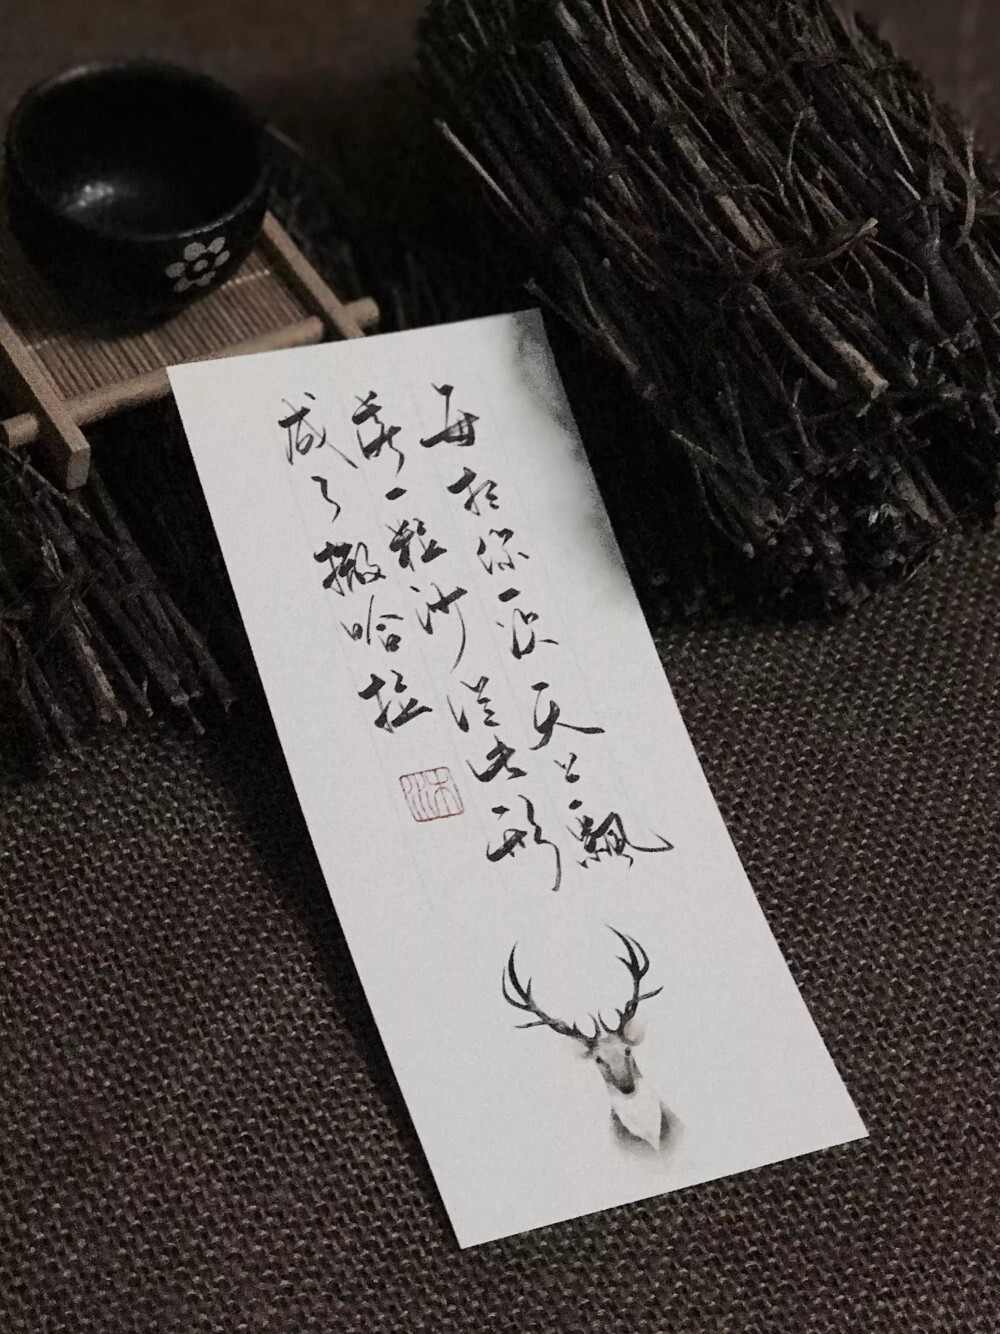 每想你一次天上飄
落一粒沙從此形
成了撒哈拉